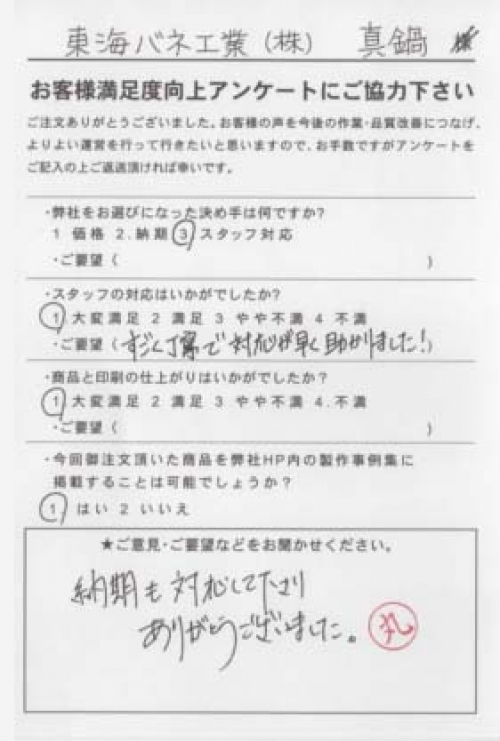 東海バネ工業(株) 真鍋 様
お客様満足度向上アンケートにご協力下さい
ご注文ありがとうございました。お客様の声を今後の作業・品質改善につなげ、
よりよい運営を行って行きたいと思いますので、お手数ですがアンケートを
ご記入の上ご返送頂ければ幸いです。
・弊社をお選びになった決め手は何ですか?
1 価格 2.納期 3 スタッフ対応
・ご要望( )
・スタッフの対応はいかがでしたか?
1 大変満足 2 満足 3 やや不満 4 不満
・ご要望(すごく丁寧で対応が早く助かりました!)
・商品と印刷の仕上がりはいかがでしたか?
1 大変満足 2 満足 3 やや不満 4.不満
・ご要望( )
・今回御注文頂いた商品を弊社HP内の製作事例集に
掲載することは可能でしょうか?
1 はい 2 いいえ
★ご意見・ご要望などをお聞かせください。
納期も対応して下さり
ありがとうございました。
丸